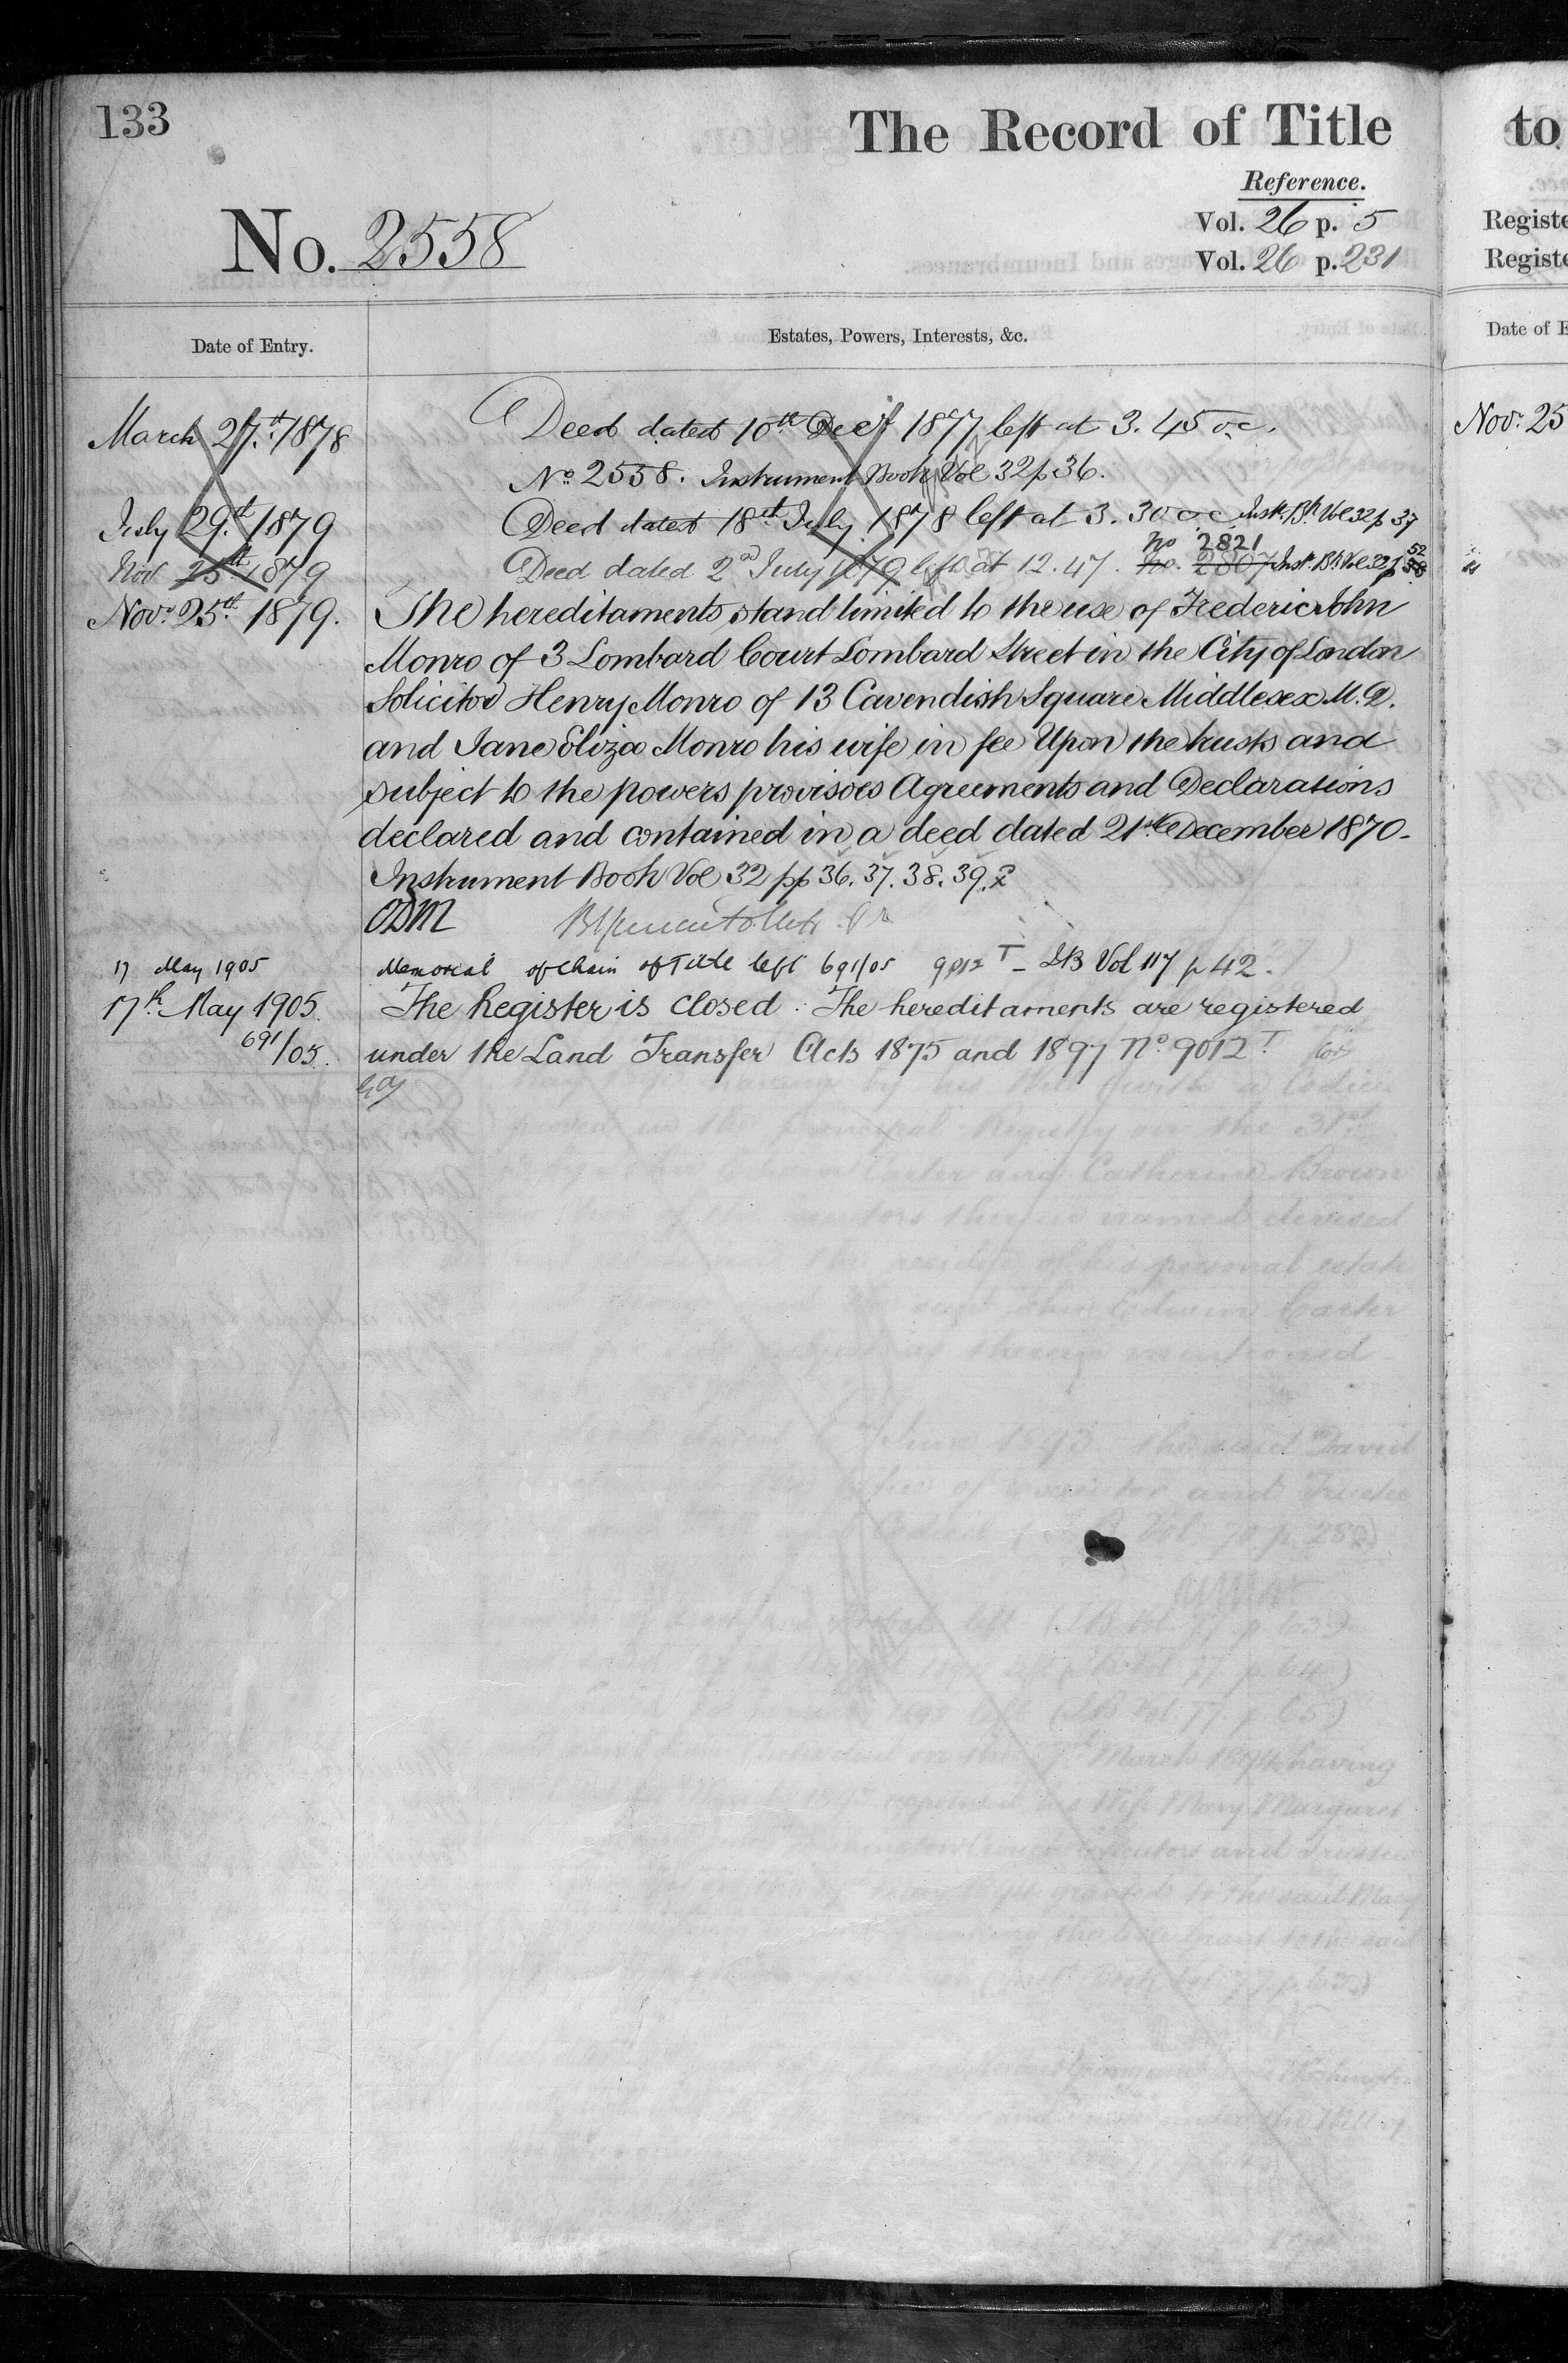 133
The Record of Title
Reference.
Vol. 26 p. 5
No. 2558
Vol. 26 p. 231
Date of Entry.
Estates, Powers, Interests, &c.
March 27th 1878
Deed dated 10th Decr 1877 left at 3.45 oc.
No 2558. Instrument Book Vol 32 p 36.
July 29th 1879
Deed dated 18th July 1878 left at 3.30 oc Instt Bk Vol 32 p 37
No 2821
Nov 25th 1879
Deed dated 2nd July 1879 left at 12.47. No. 2807 Inst Bk Vol 32 p 52
Novr 25th 1879.
The hereditaments stand limited to the use of Frederic John
Monro of 3 Lombard Court Lombard Street in the City of London
Solicitor Henry Monro of 13 Cavendish Square Middlesex M.D.
and Jane Eliza Monro his wife in fee Upon the trusts and
subject to the powers provisoes Agreements and Declarations
declared and contained in a deed dated 21st December 1870-
Instrument Book Vol 32 pp 36. 37. 38. 39.
ODM
17 May 1905
Memorial of Chain of Title left 691/05 9012 T - IB Vol 117 p 42.
17th May 1905.
The Register is closed. The hereditaments are registered
691/05.
under the Land Transfer Acts 1875 and 1897 No 9012 T.
to
Registe
Registe
Date of E
Novr 25